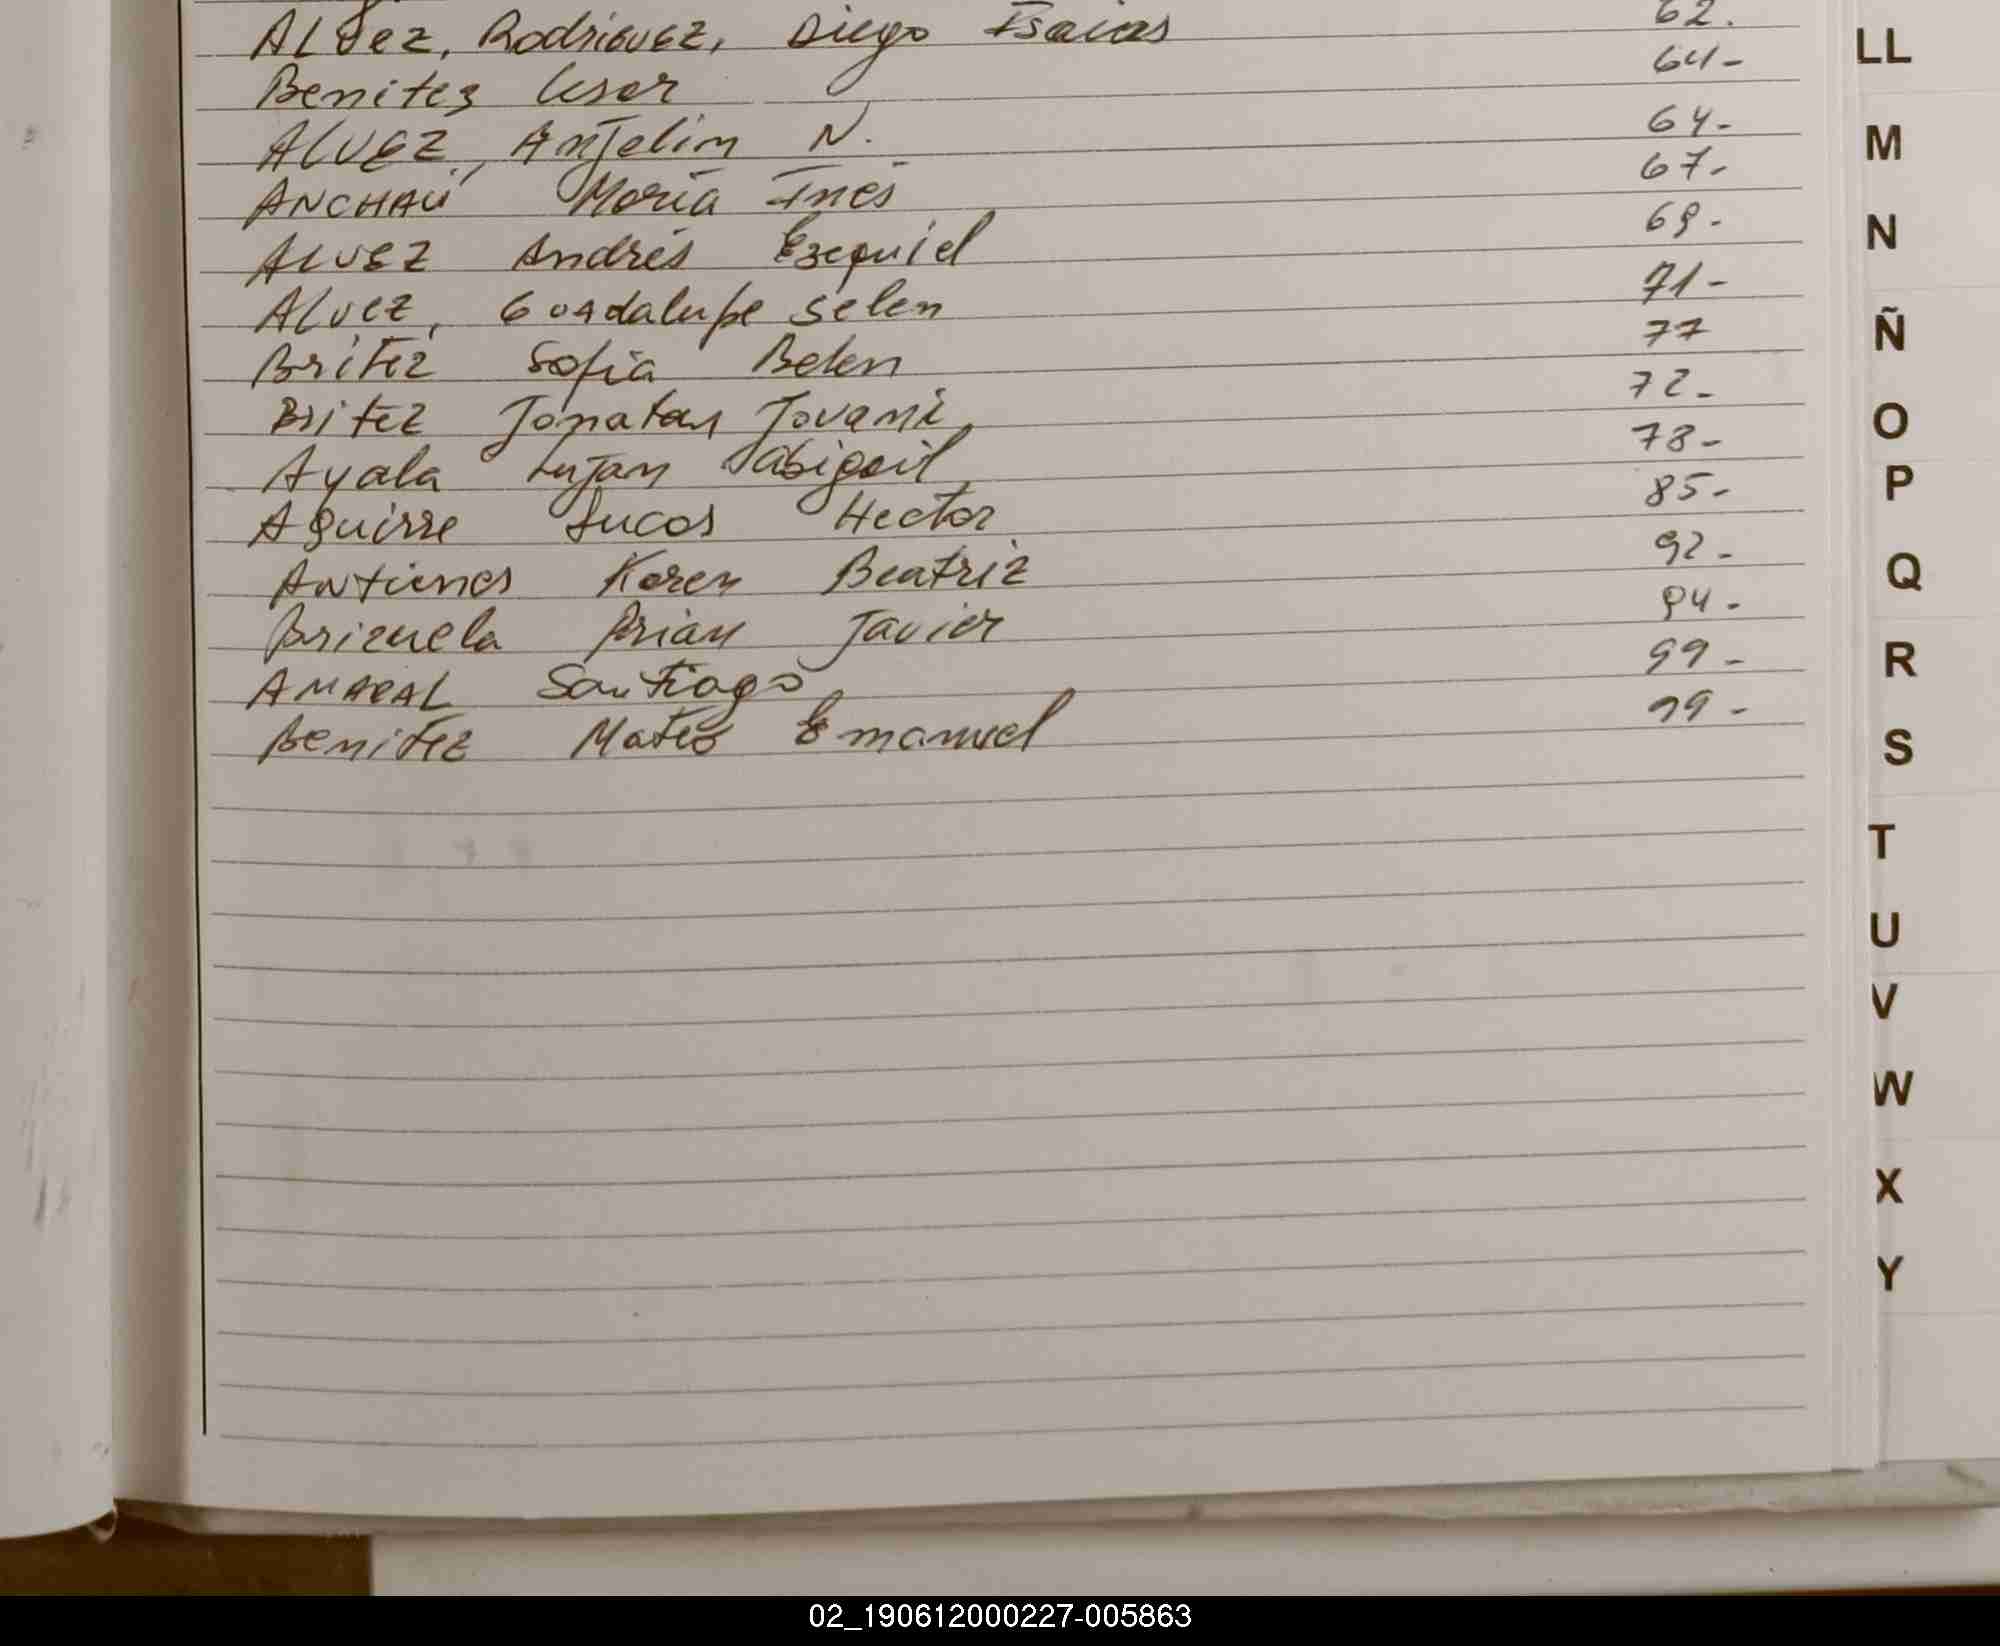 ALVez, Rodriguez, Diego Isaias 62.
Benitez Cesar 64-
ALVEZ, Anjelim N. 64-
ANCHAÚ María Inés 67-
ALVEZ Andrés Ezequiel 69-
ALvez, Guadalupe Selen 71-
Britez Sofia Belen 77
Britez Jonatan Jovani 72-
Ayala Lujan Abigail 78-
Aguirre Lucas Hector 85-
Karen Beatriz 92-
Brizuela Brian Javier 94-
AMARAL Santiago 99-
Benitez Mateo Emanuel 99-
LL
M
N
Ñ
O
P
Q
R
S
T
U
V
W
X
Y
02_190612000227-005863